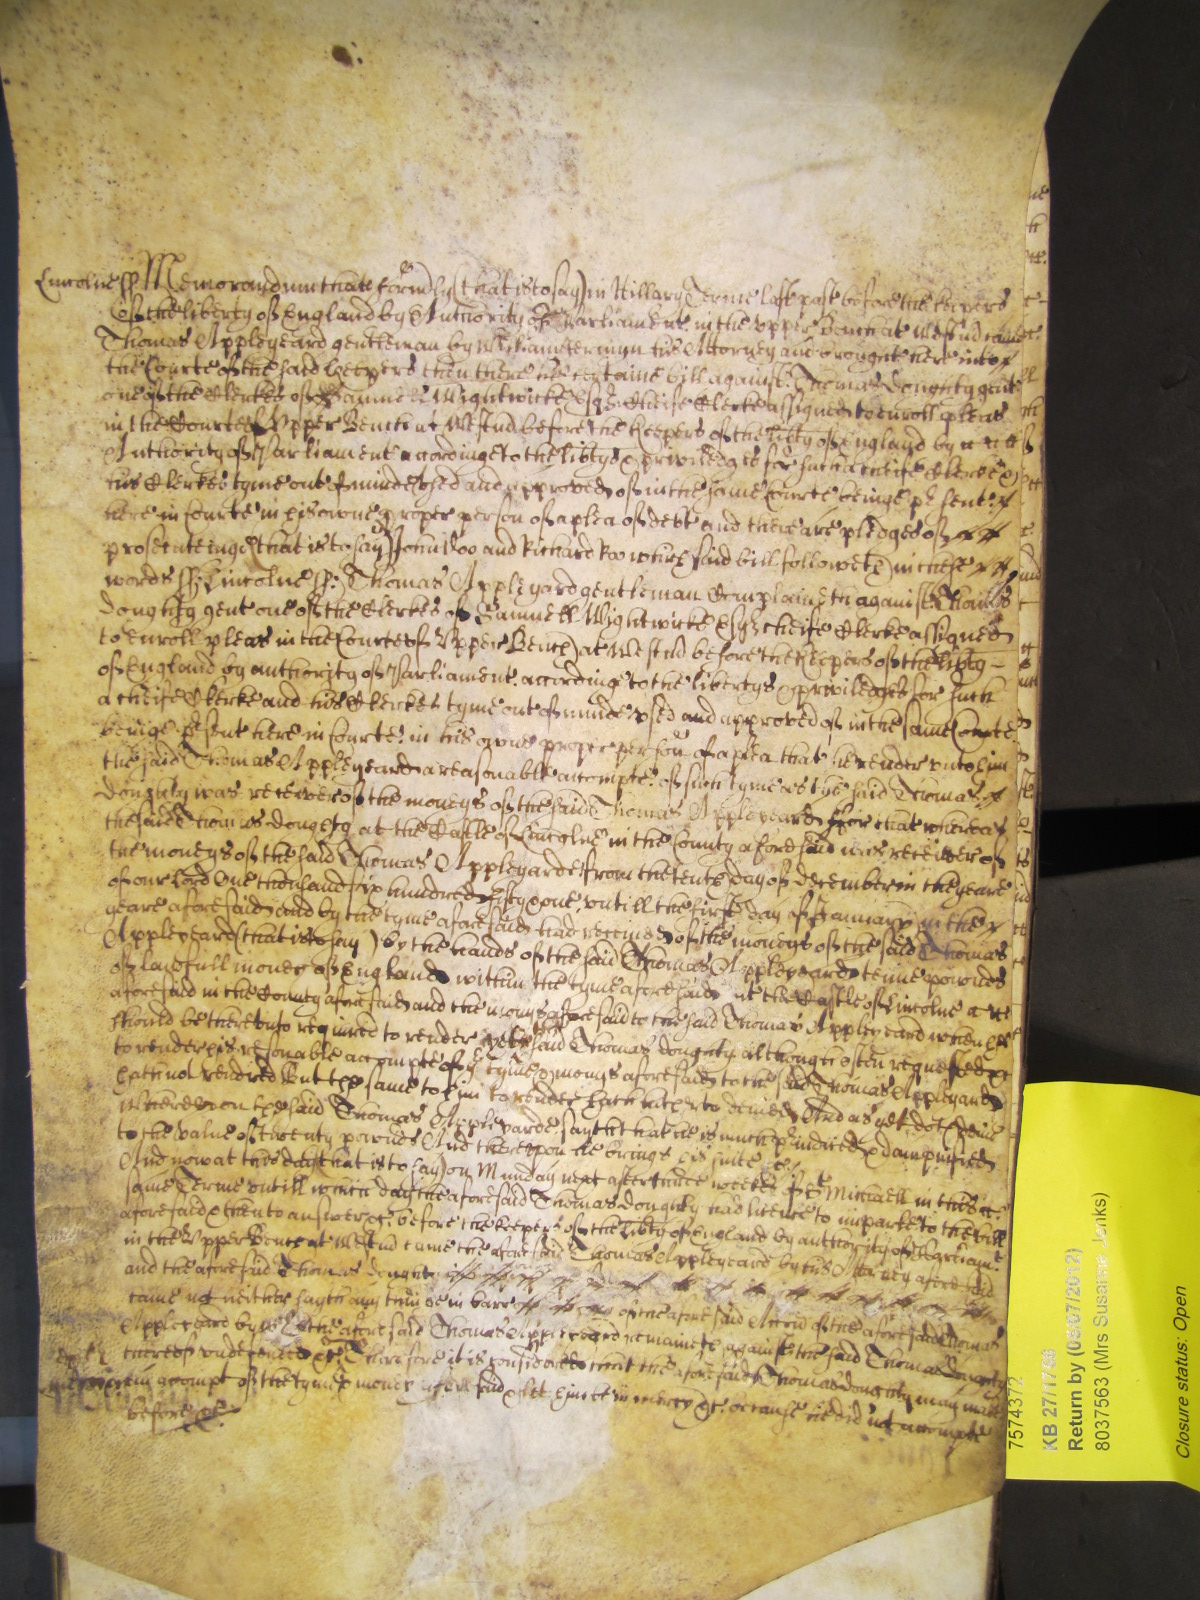 Lincolne ss Memorandum that formerly (that is to say) in Hillary Terme last past before the keepers
of the liberty of England by Authority of Parliament in the upper Bench at Westm came
Thomas Appleyeard gentleman by William his Attorney and brought here into
the Courte of the said keepers then there his certaine bill against Thomas Doughty gent
one of the Clerkes of Samuell Wightwicke Esqr cheife Clerke assigned to enroll pleas
in the Courte of Upper Bench at Westm before the Keepers of the libty of England by
Authority of Parliament accordinge to the libtys & priviledges for such a cheife Clerke &
his Clerkes tyme out of minde used and approved of in the same Courte beinge psent
here in Courte in his owne proper person of a plea of debt and there are pledges of
prosecuteinge (that is to say) John Doo and Richard Roo which said bill followeth in these
words ss Lincolne ss: Thomas Appleyard gentleman Complaineth against Thomas
doughty gent one of the Clerkes of Samuell Wightwicke Esqr cheife Clerke assigned
to enroll pleas in the Courte of Upper Bench at Westm before the Keepers of the libty
of England by authority of Parliament according to the libertys & priviledges for such
a cheife Clerke and his Clerkes tyme out of minde used and approved of in the same Courte
beinge psent here in Courte in his owne proper person of a plea that he render unto him
the said Thomas Appleyeard a reasonable accompte of such tyme as the said Thomas
doughty was receiver of the moneys of the said Thomas Appleyeard ffor that whereas
the said Thomas doughty at the Castle of Lincolne in the County aforesaid was receiver of
the moneys of the said Thomas Appleyarde from the tenth day of december in the yeare
of our lord One thousand six hundred fifty & one untill the first day of January in the
yeare aforesaid and by the tyme aforesaid had received of the moneys of the said Thomas
Appleyeard (that is to say) by the hands of the said Thomas Appleyeard tenne pownds
of lawfull money of England within the tyme aforesaid at the Castle of Lincolne
aforesaid in the County aforesaid and the monys aforesaid to the said Thomas Appleyeard when he
should be thereunto required to render yet the said Thomas doughty although often requested
to render his resonable accompte of the tyme & monys aforesaid to the said Thomas Appleyard
hath not rendred But the same to him to render hath hitherto denied And as yet doth denie
Whereupon the said Thomas Appleyarde sayth that he is much & dampnified
to the value of twenty pownds And thereupon he brings his suite &c
And now at this day (that is to say) on Munday next after three weekes of St Michaell in this
same Terme untill which day the aforesaid Thomas Doughty had licence to imparle to the bill
aforesaid & then to answer &c before the keepers of the libty of England by authority of Parliamt
in the Upper Bench at Westm came the aforesaid Thomas Appleyeard by his Attorney aforesaid
and the aforesaid Thomas doughty
came not neither sayth any thinge in barr of the aforesaid Accon of the aforesaid Thomas
Appleyeard by which the aforesaid Thomas Appleyeard remaineth against the said Thomas Doughty
thereof undefended &c Therefore it is considered that the aforesaid Thomas doughty may make
him accompt of the tyme & money aforesaid & let him be in mercy &c because he did not accompte
before &c
7574372
KB 27/1756
Return by (09/07/2012)
8037563 (Mrs Susanne Jenks)
Closure status: Open